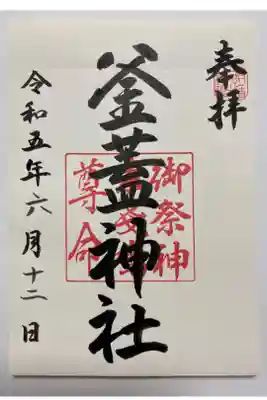 奉拝
釜蓋神社
御祭神
尊命
令和五年六月十二日